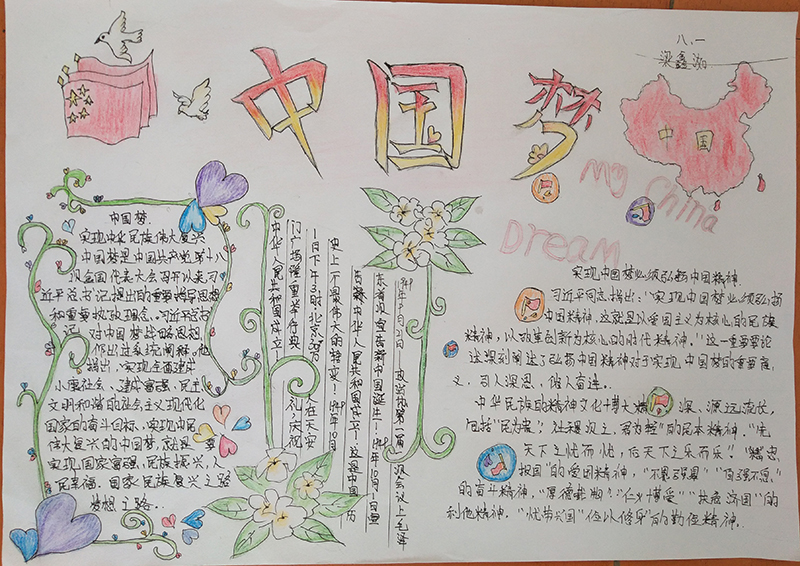 八.一
梁鑫
中国梦
中国
My China
Dream
中国梦
实现中华民族伟大复兴
中国梦是中国共产党第十八
次全国代表大会召开以来习
近平总书记提出的重要指导思想
和重要执政理念。习近平总书
记 对中国梦战略思想
作出过系统阐释。他
指出,实现全面建成
小康社会、建成富强、民主
文明和谐的社会主义现代化
国家的奋斗目标、实现中民
伟大复兴的中国梦,就是 要
实现国家富强、民族振兴、人
民幸福。国家民族复兴之路
梦想之路。
1949年9月21日
政治协第一届 次会议上毛泽
东宣
新中国诞生—1949年10月1日
中华人民共和国成立—这是中国历
史上一个最伟大的转变—1949年10月
1日下午3时北京 人在天安
门广场隆重举行典 礼庆祝
中华人民共和国成立
实现中国梦必须弘扬中国精神
习近平同志指出:“实现中国梦必须弘扬
中国精神。这就是以爱国主义为核心的民族
精神,以改革创新为核心的时代精神。”这一重要论
述深刻阐述了弘扬中国精神对于实现中国梦的重要意
义,引人深思,催人奋进。
中华民族的精神文化博大精 深、源远流长,
包括“民为贵,社稷次之,君为轻”的民本精神,“先
天下之忧而忧,后天下之乐而乐”“精忠
报国”的爱国精神,“自强不息”
的奋斗精神,“厚德载物”“仁义博爱”“扶危济困”的
利他精神,“忧劳兴国”“俭以修身”的勤俭精神。